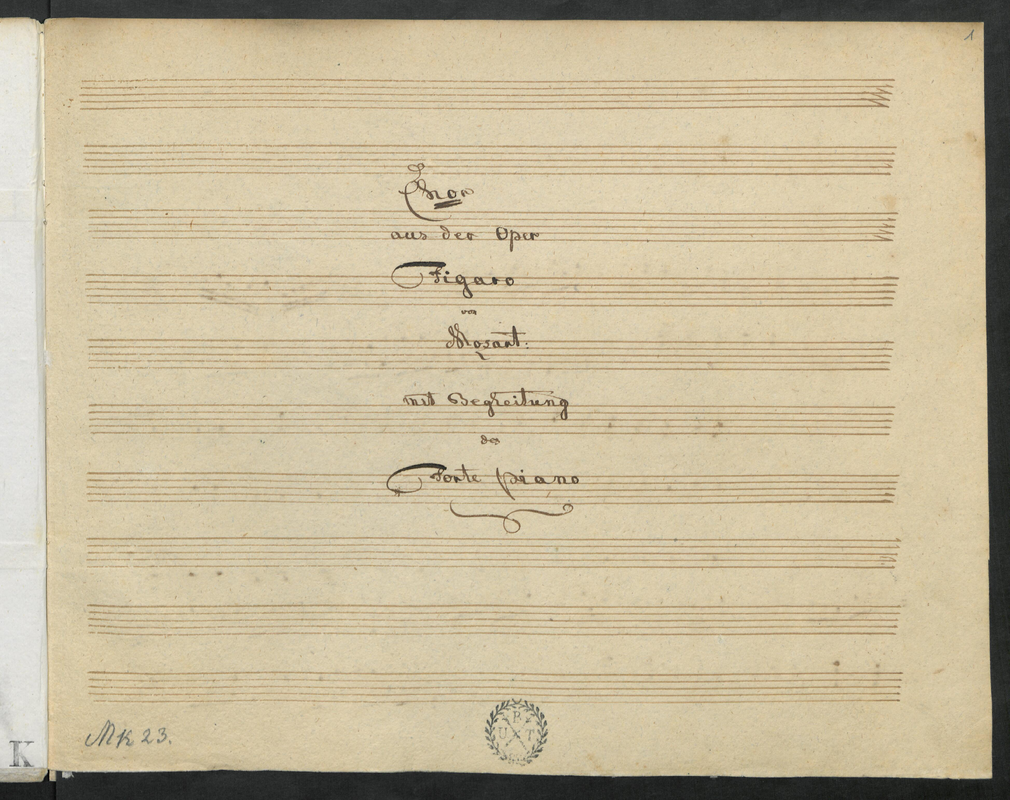 1
Chor
aus der Oper
Figaro
von
Mozart:
mit Begleitung
des
Forte piano
MK 23.
B
U T
K